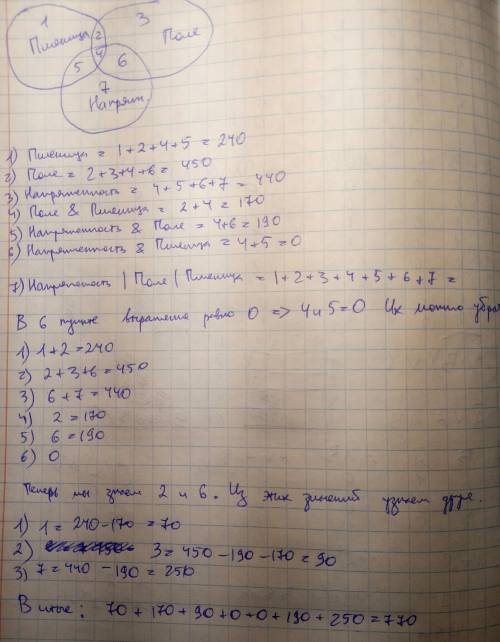 1
3
2
Пшеница
Поле
4
5
6
7
Напряж.
1) Пшеница = 1+2+4+5 = 240
2) Поле = 2+3+4+6 = 450
3) Напряженность = 4+5+6+7 = 440
4) Поле & Пшеница = 2+4 = 170
5) Напряженность & Поле = 4+6 = 190
6) Напряженность & Пшеница = 4+5 = 0
7) Напряженность | Поле | Пшеница = 1+2+3+4+5+6+7 =
В 6 пункте выражение равно 0 => 4 и 5 = 0 Их можно убрат
1) 1+2 = 240
2) 2+3+6 = 450
3) 6+7 = 440
4) 2 = 170
5) 6 = 190
6) 0
Теперь мы знаем 2 и 6. Из этих значений узнаем друг.
1) 1 = 240 - 170 = 70
2) 3 = 450 - 190 - 170 = 90
3) 7 = 440 - 190 = 250
В итоге: 70 + 170 + 90 + 0 + 0 + 190 + 250 = 770